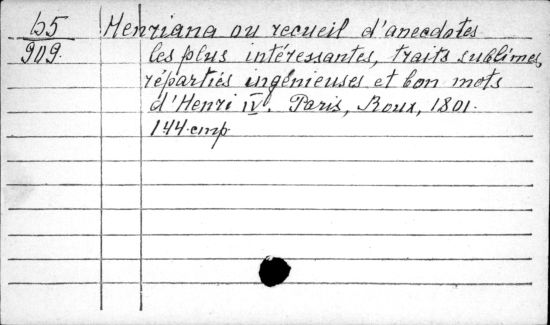 65 Henriana ou recueil d'anecdotes
909. les plus intéressantes, traits sublimes,
réparties ingénieuses et bon mots
d'Henri IV. Paris, Roux, 1801.
144 стр